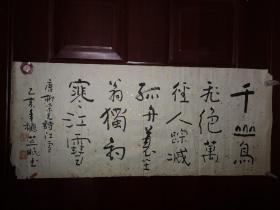 千山鳥
飛絕萬
徑人踪滅
孤舟蓑笠
翁獨釣
寒江雪
唐柳宗元詩江雪
乙亥年